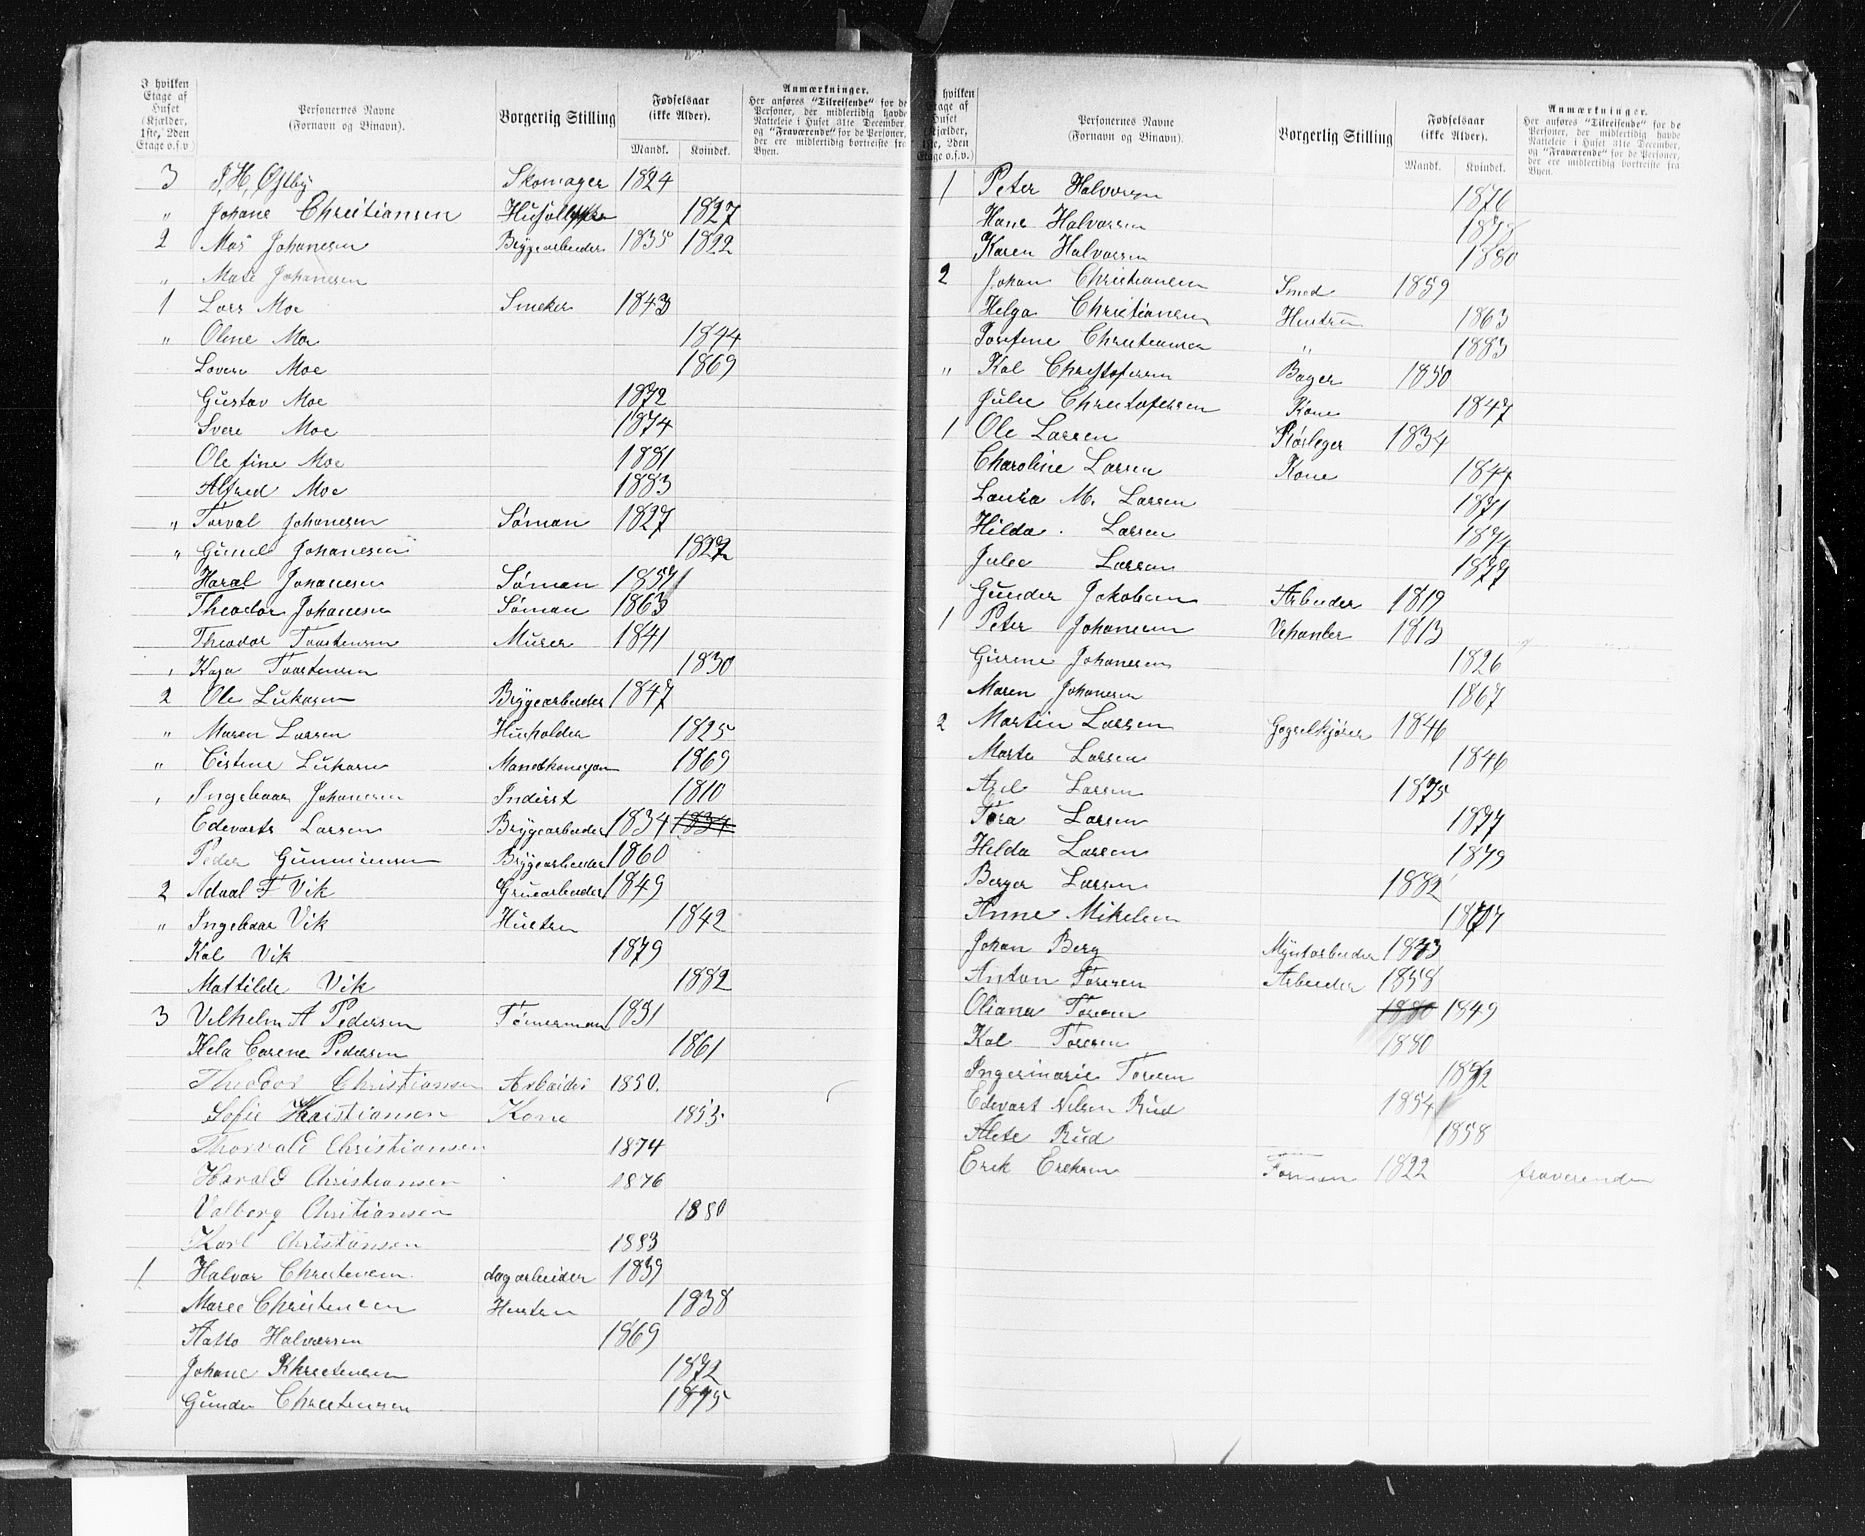 I hvilken Etage af Huset (Kjælder, 1ste, 2den Etage o.s.v.)
Personernes Navne (Fornavn og Binavn).
Borgerlig Stilling
Fødselsaar (ikke Alder).
Mandk. Kvindek.
Anmærkninger.
Her anføres "Tilreisende" for de Personer, der midlertidig havde Natteleie i Huset 31te December, og "Fraværende" for de Personer, der ere midlertidig bortreiste fra Byen.
3 J. H. Østby Skomager 1824
" Johane Christiansen 1827
2 Johanesen Bryggearbeider 1835 1822
" Johanesen
1 Lars Moe 1843
" Oline Moe 1844
Moe 1869
Gustav Moe 1872
Svere Moe 1874
Ole fine Moe 1881
Alfred Moe 1883
" Torval Johanesen Sóman 1827
" Johanesen 1827
Haral Johanesen Sóman 1857
Theodor Johanesen Sóman 1863
Theodor Taastensen Murer 1841
, Kaja Taastensen 1830
2 Ole Lukasen Bryggearbeider 1847
" Maren Larsen Husholder 1825
" Cistine Lukasen 1869
, Ingebaar Johanesen Inderst 1810
Edevarts Larsen Bryggearbeider 1834 1834
Peder Bryggearbeider 1860
2 Adaal F Vik Gruearbeider 1849
" Ingebaar Vik Hustru 1842
Kal Vik 1879
Mattilde Vik 1882
3 Vilhelm A Pedersen Tømerman 1831
Carene Pedersen 1861
Theodor Christiansen Arbeider 1850.
Sofie Kristiansen Kone 1853.
Thorvald Christiansen 1874
Harald Christiansen 1876
Valborg Christiansen 1880
Karl Christiansen 1883
1 Halvor Christensen dagarbeider 1839
Maree Christensen Husten 1838
Halvorsen 1869
Johane Khristensen 1872
Gunder Christensen 1875
I hvilken Etage af Huset (Kjælder, 1ste, 2den Etage o.s.v.)
Personernes Navne (Fornavn og Binavn).
Borgerlig Stilling
Fødselsaar (ikke Alder).
Mandk. Kvindek.
Anmærkninger.
Her anføres "Tilreisende" for de Personer, der midlertidig havde Natteleie i Huset 31te December, og "Fraværende" for de Personer, der ere midlertidig bortreiste fra Byen.
1 Peter Halvorsen 1876
Hans Halvorsen
Karen Halvorsen 1880
2 Johan Christiansen Smed 1859
Helga Christiansen Hustru 1863
Josefine Christiansen " 1883
" Kal Christofersen Bager 1850
Julie Christofersen Kone 1847
1 Ole Larsen Rórleger 1834
Charoline Larsen Kone 1844
Laura M. Larsen 1871
Hilda . Larsen 1874
Julie Larsen 1877
Gunder Jakobsen Arbeider 1819
1 Peter Johanesen Vehanler 1813
Gurine Johanesen 1826
Maren Johanesen 1867
2 Martin Larsen 1846
Marte Larsen 1846
Axel Larsen 1875
Tora Larsen 1877
Hilda Larsen 1879
Berger Larsen 1882
Anne Mikelsen
Johan Berg Myntarbeider 1843
Anton Toresen Arbeider 1858
Oliana Toresen 1880 1849
Kal Toresen 1880
Ingermarie Toresen 1882
Edevart Nilsen Rud 1854
Alete Rud 1858
Erik Ereksen 1822 fraverende